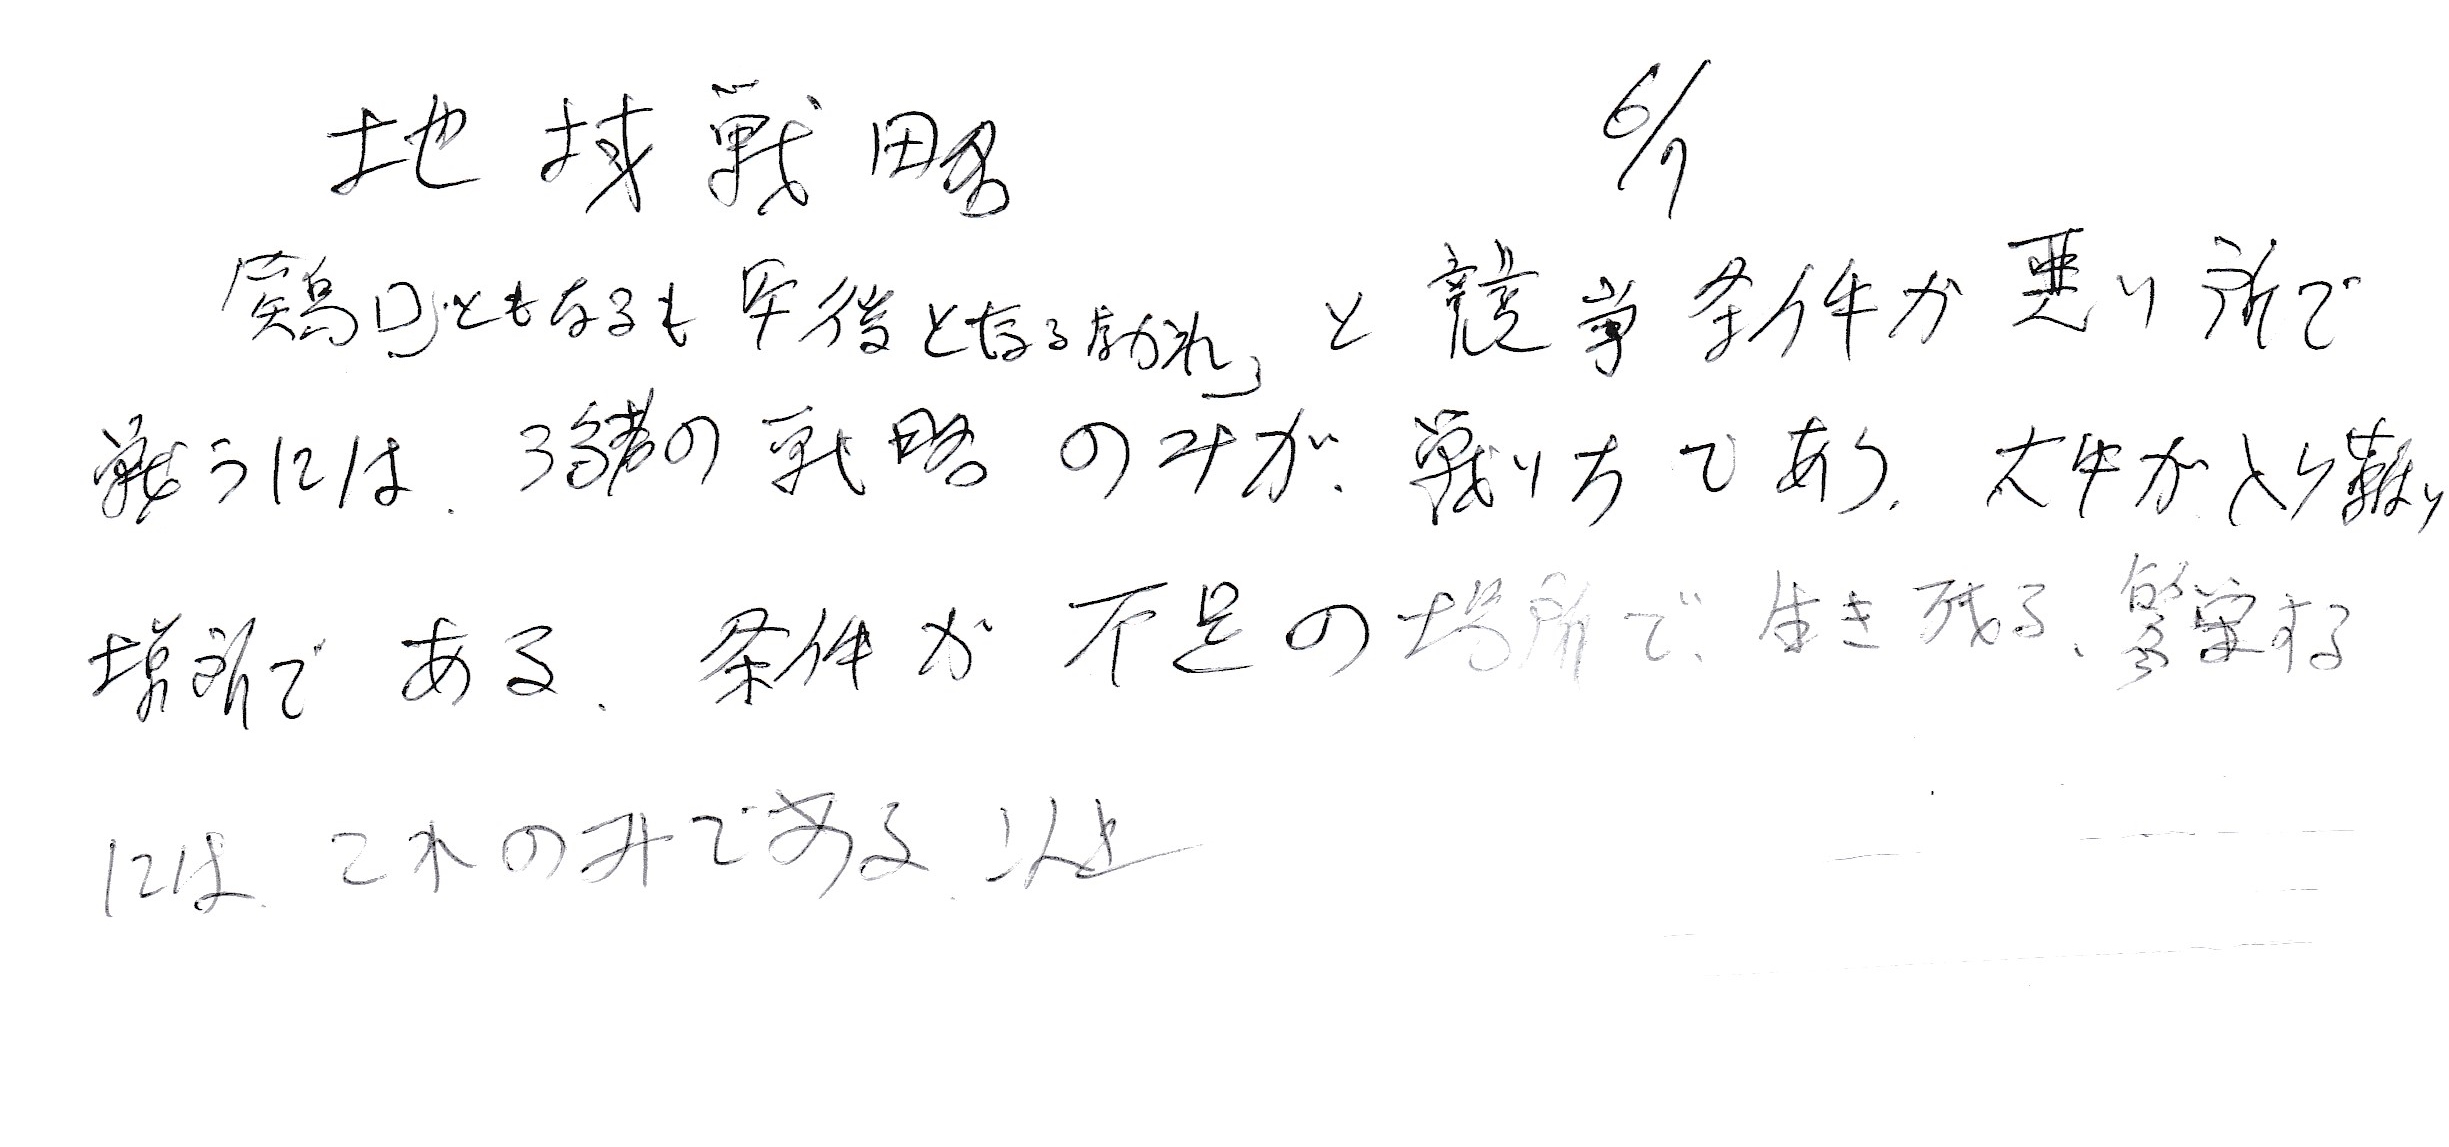 地域戦略 6/7
「鶏口」ともなるも午後となる勿れ」と競争条件が悪い所で
戦うには、弱者の戦略のみが、戦い方であり、大手がとり難い
場所である、条件が不足の場所で、生き残る、繁栄する
には、これのみである、以上